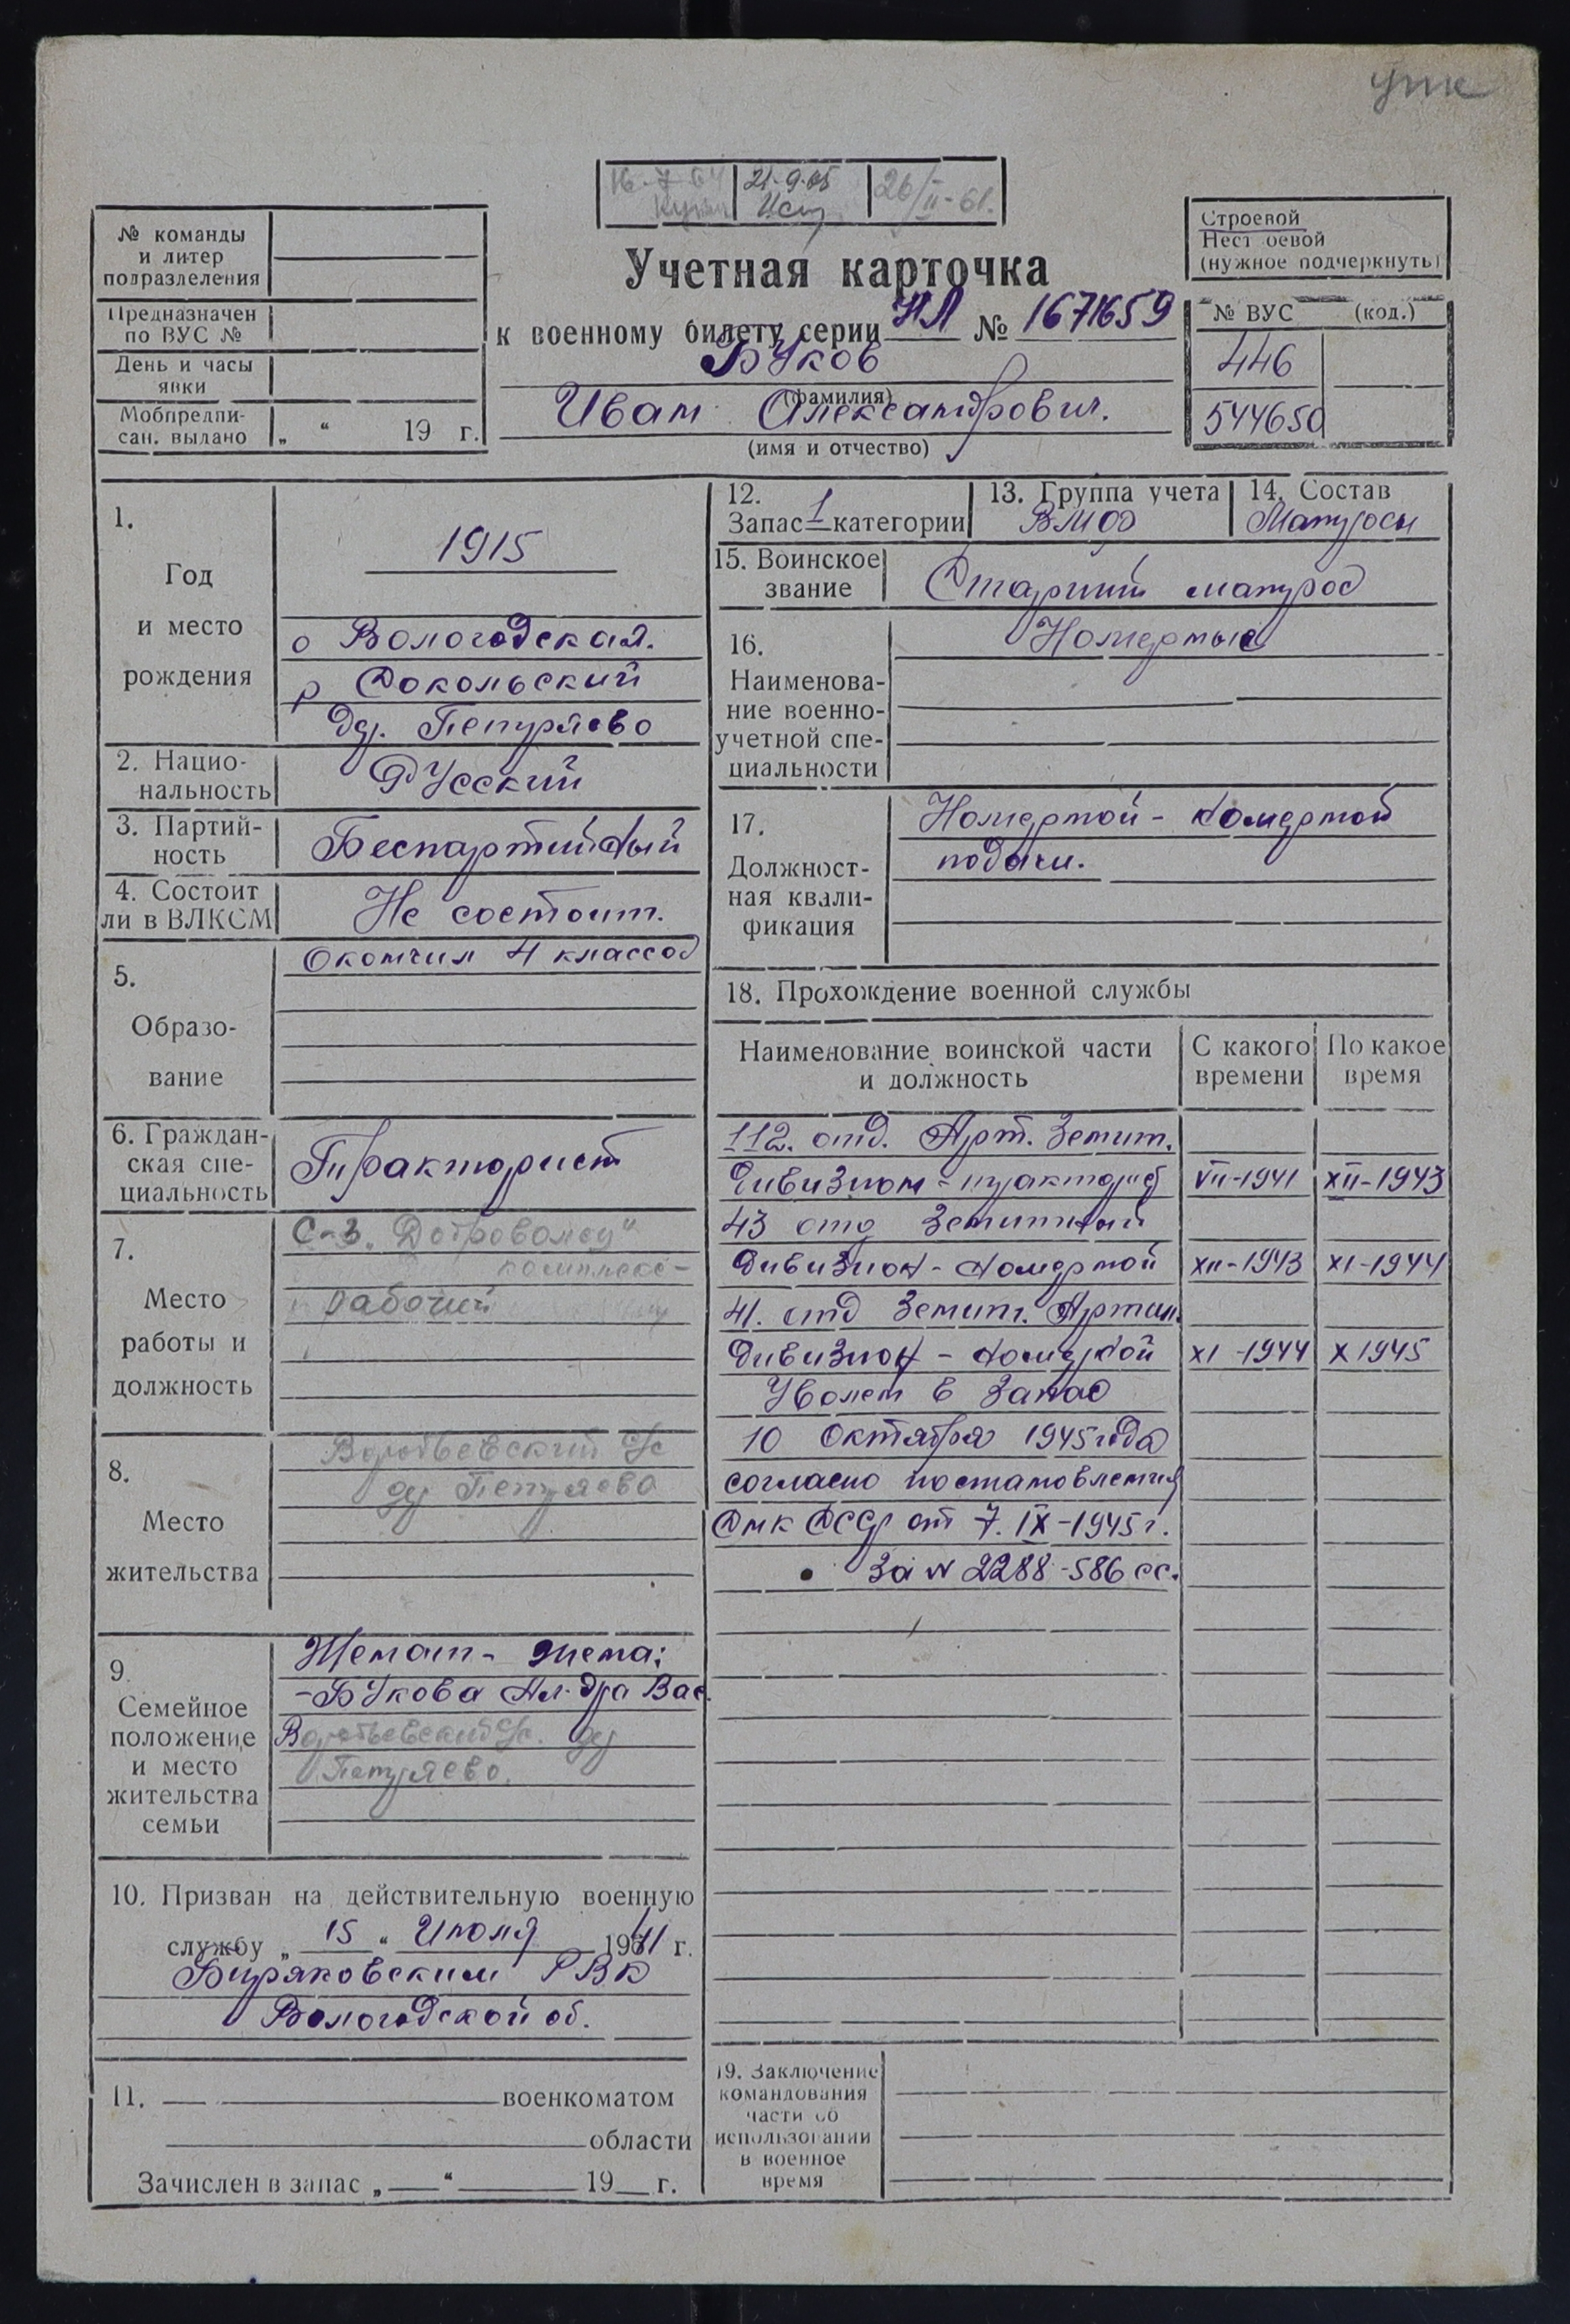 упк
16-7-64
21-9-65
26/II-61.
№ команды
и литер
подразделения
Предназначен
по ВУС №
День и часы
явки
Мобпредпи-
сан. выдано „ “ 19 г.
Учетная карточка
к военному билету серии НЛ № 1671659
Буков
(фамилия)
Иван Александрович.
(имя и отчество)
Строевой
Нестроевой
(нужное подчеркнуть)
№ ВУС (код.)
446
544650
1.
Год
и место
рождения
1915
о Вологодская.
р Сокольский
дер. Петряево
2. Нацио-
нальность
Русский
3. Партий-
ность
Беспартийный
4. Состоит
ли в ВЛКСМ
Не состоит.
5.
Образо-
вание
Окончил 4 классов
6. Граждан-
ская спе-
циальность
Тракторист
7.
Место
работы и
должность
С-з „Доброволец“
комплекс-
рабочий
8.
Место
жительства
Воробьевский с/с
дер Петряево
9.
Семейное
положение
и место
жительства
семьи
Женат - жена:
- Букова Ал-дра Вас.
Воробьевский с/с. дер
Петряево.
10. Призван на действительную военную
службу „ 15 “ Июля 1941 г.
Биряковским РВК
Вологодской об.
11. военкоматом
области
Зачислен в запас „ “ 19 г.
12.
Запас 1 категории
13. Группа учета
ВМФ
14. Состав
Матросы
15. Воинское
звание
Старший матрос
16.
Наименова-
ние военно-
учетной спе-
циальности
Номерные
17.
Должност-
ная квали-
фикация
Номерной - номерной
подачи.
18. Прохождение военной службы
Наименование воинской части
и должность
С какого
времени
По какое
время
112. отд. Арт. Зенит.
дивизион - тракторист VII-1941 XII-1943
43 отд зенитный
дивизион - номерной XII-1943 XI-1944
41. отд Зенит. Артил.
дивизион - номерной XI-1944 X 1945
Уволен в запас
10 Октября 1945 года
согласно постановления
СНК СССР от 7. IX-1945 г.
за N 2288-586 сс.
19. Заключение
командования
части об
использовании
в военное
время